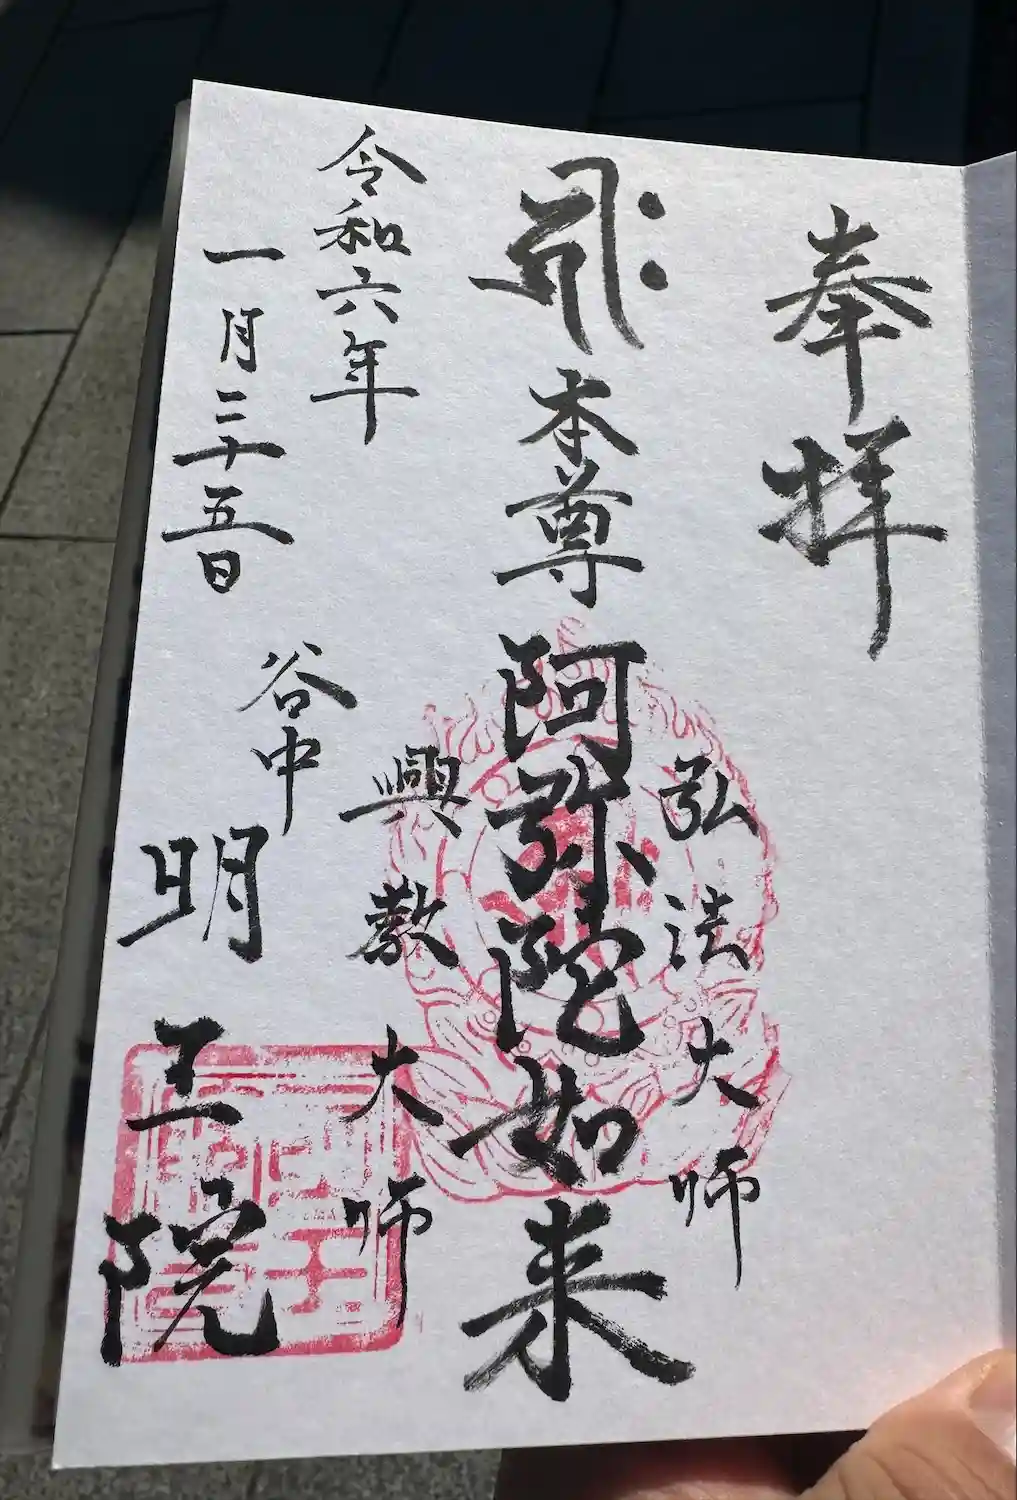 奉拝
弘法大師
𑖮𑖿𑖨𑖱𑖾
本尊 阿弥陀如来
興教大師
令和六年
一月二十五日
谷中
明王院